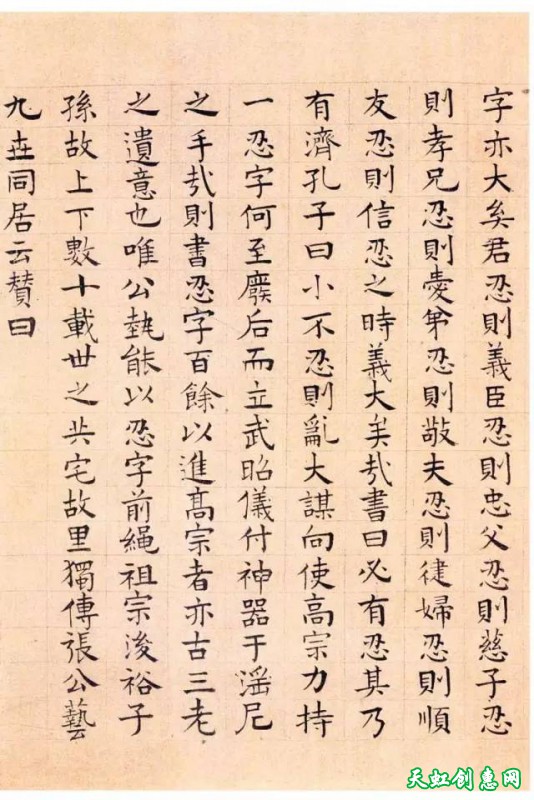 字亦大矣君忍則義臣忍則忠父忍則慈子忍
則孝兄忍則愛弟忍則敬夫忍則徤婦忍則順
友忍則信忍之時義大矣哉書曰必有忍其乃
有濟孔子曰小不忍則亂大謀向使高宗力持
一忍字何至廢后而立武昭儀付神器于滛尼
之手哉則書忍字百餘以進髙宗者亦古三老
之遺意也唯公執能以忍字前繩祖宗浚裕子
孫故上下數十載世之共宅故里獨傳張公藝
九世同居云賛曰
天虹创惠网